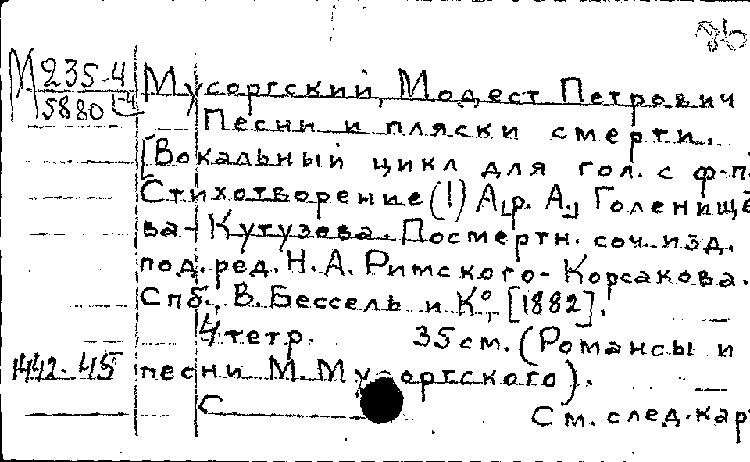 36
М 235-4
5880
Мусоргский, Модест Петрович
Песни и пляски смерти.
[Вокальный цикл для гол. с ф-п.
Стихотворение(!) А,р. А., Голенище
ва-Кутузова. Посмертн. соч. изд.
под. ред. Н.А. Римского-Корсакова.
Спб., В. Бессель и К°, [1882].
4 тетр. 35 см. (Романсы и
1442-45 песни М. Мусоргского).
С
См. след. кар